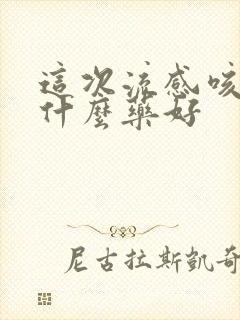 這次流感咳
什麼藥好
尼古拉斯凱奇